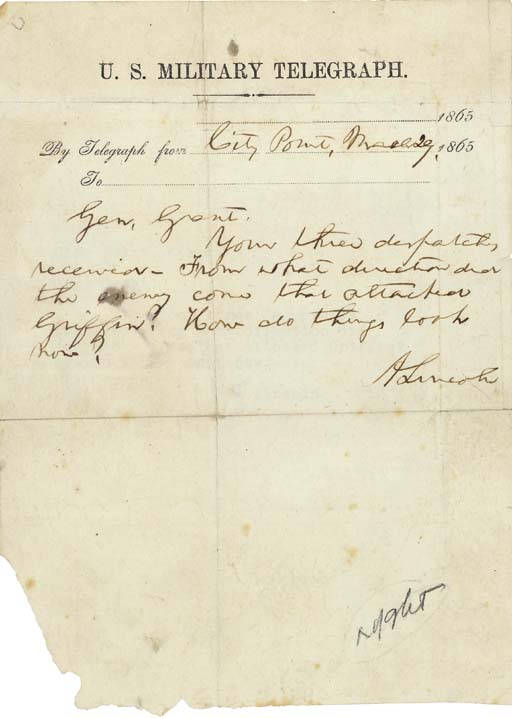 U. S. MILITARY TELEGRAPH.
1865
By Telegraph from City Point, March 29, 1865
To
Gen. Grant.
Your three despatches
received – From what direction did
the enemy come that attacked
Griffin? How do things look
now?
A Lincoln